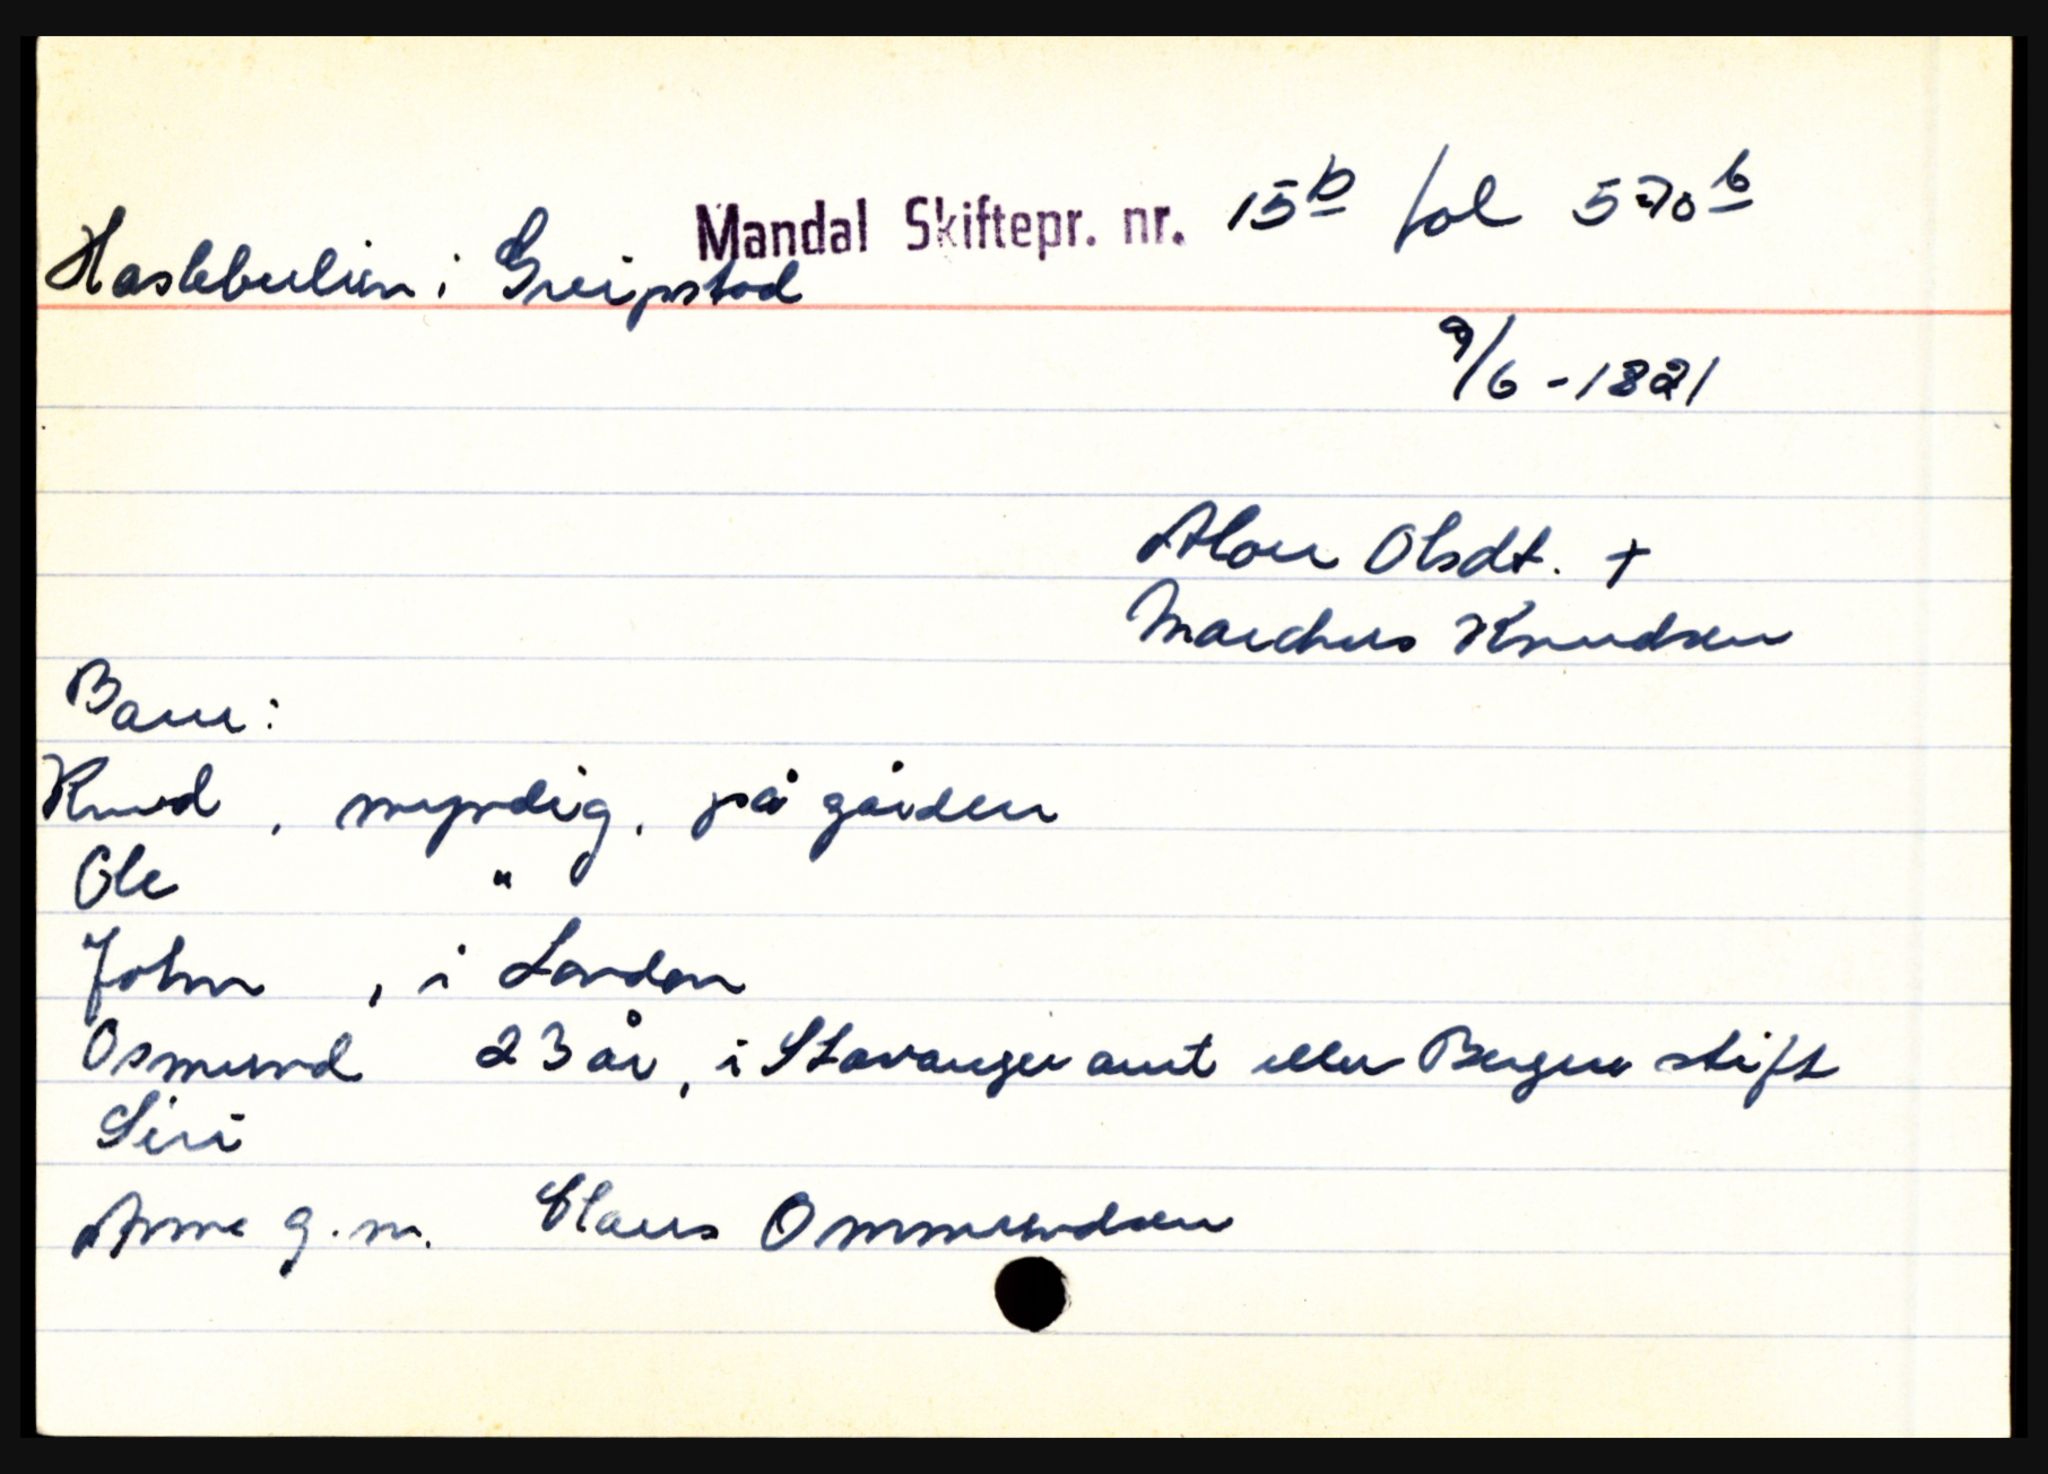 Mandal Skiftepr. nr. 15b fol 570b
Haslebulien i Greipstad
9/6 - 1821
Olsdt. +
Marchus Knudsen
Barn:
Knud, myndig, på gården
Ole "
John, i London
Osmund 23 år, i Stavanger amt eller Bergens stift
Siri
Anne g. m. Claus Ommundsen